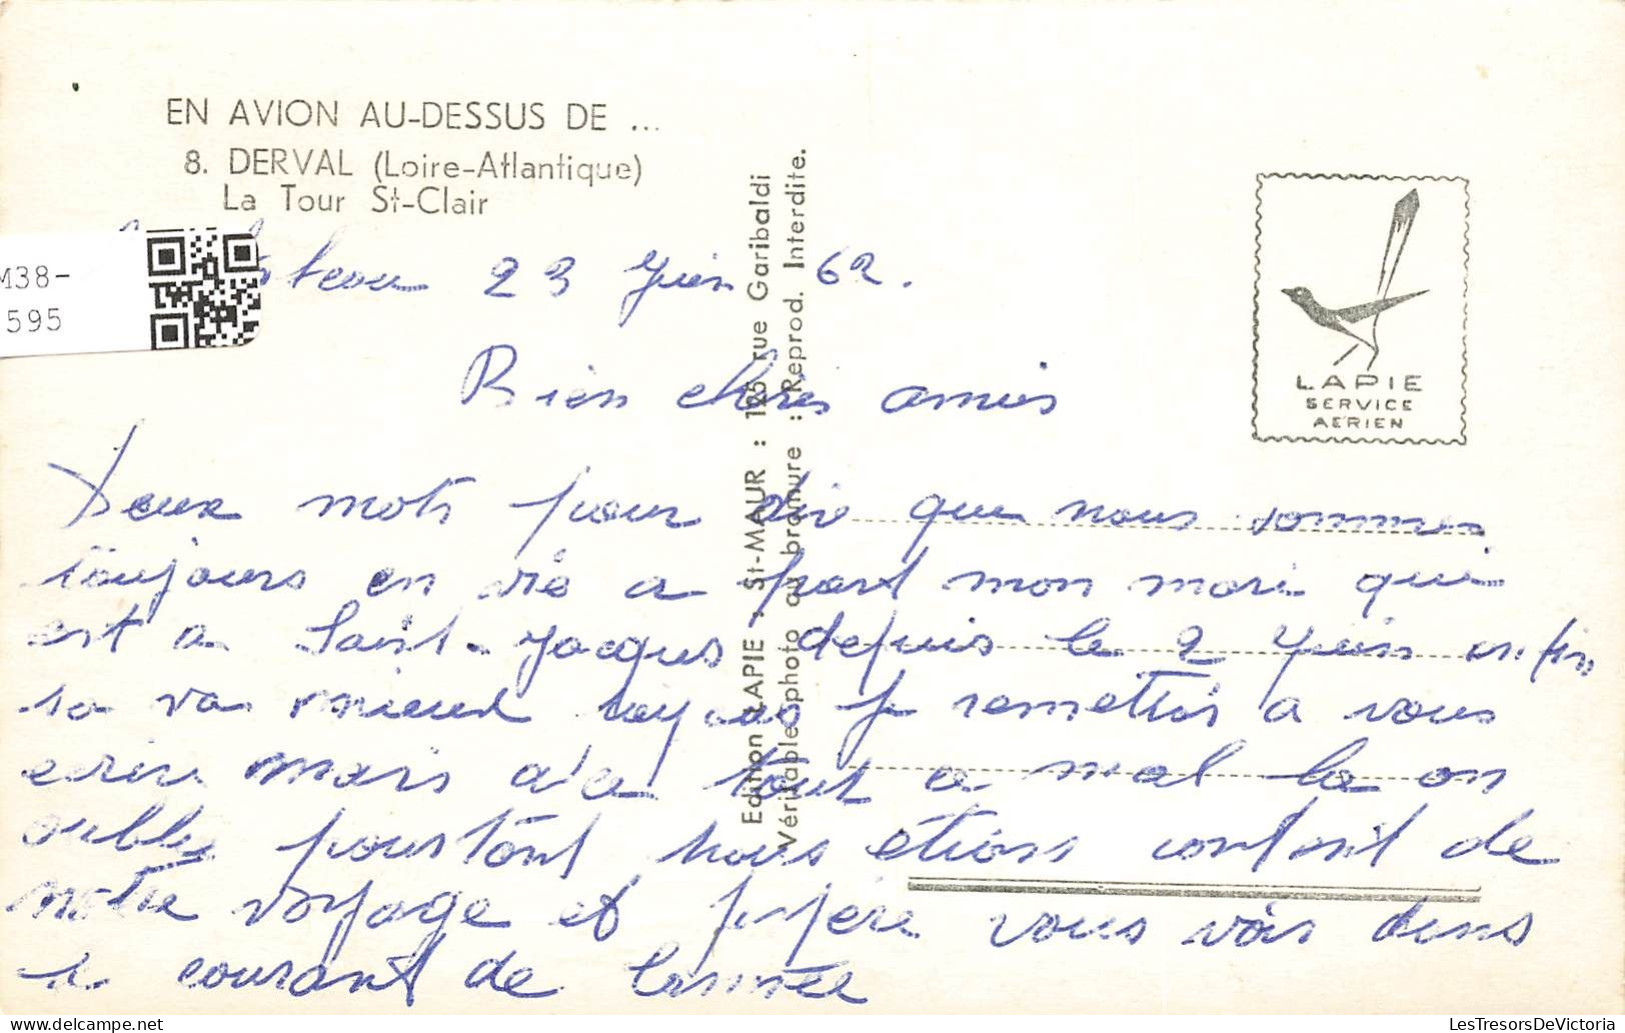 EN AVION AU-DESSUS DE ...
8. DERVAL (Loire-Atlantique)
La Tour St-Clair
M38-
595
23 Juin 62.
Bien chers amis
Deux mots pour dire que nous sommes
toujours en vie a part mon mari qui
est a Saint-Jacques depuis le 2 Juin enfin
sa va mieux toujours je remettais a vous
ecrire mais a'a tout a mal la on
oublie pourtant nous etions contant de
notre voyage et j'espère vous voir dans
le courant de l'année
Edition LAPIE : St-MAUR : 125 rue Garibaldi
Véritable photo au bromure : Reprod. Interdite.
LAPIE
SERVICE
AERIEN
LesTresorsDeVictoria